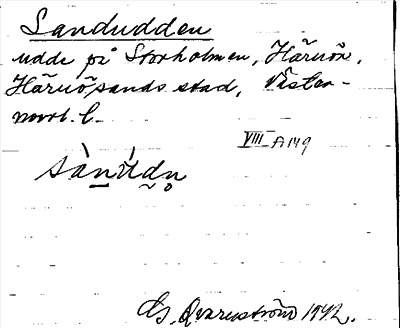 Sandudden
udde på Storholmen, Härnön,
Härnösands stad, Väster-
norrl. l.
VIII A 149
sànúdn̥
G. Qvarnström 1942.